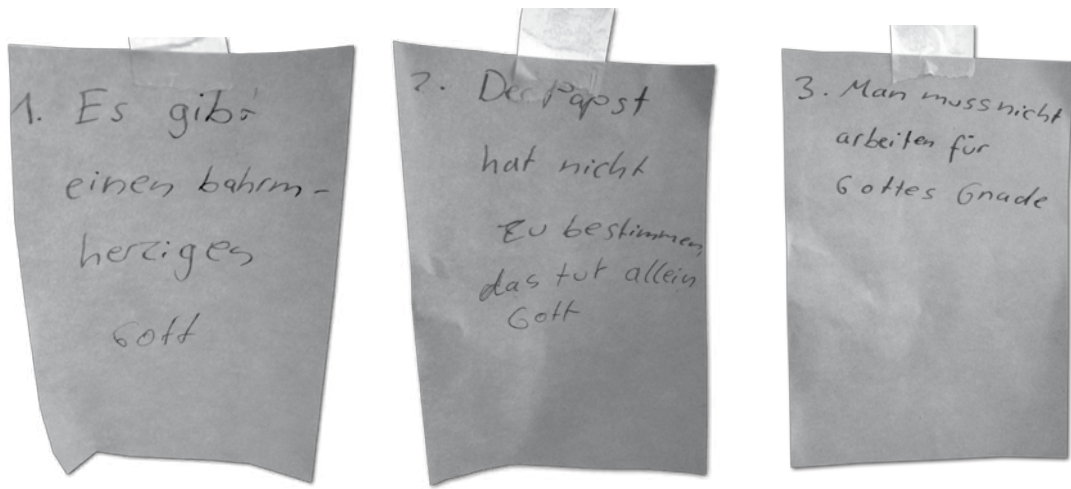 1. Es gibt
einen bahrm-
herzigen
Gott
2. Der Papst
hat nicht
zu bestimmen,
das tut allein
Gott
3. Man muss nicht
arbeiten für
Gottes Gnade